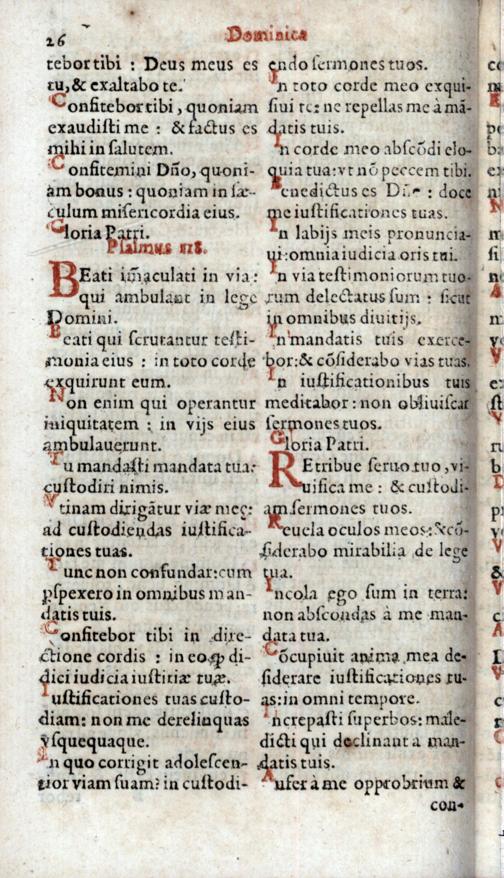 26
Dominica
tebor tibi : Deus meus es
tu, & exaltabo te.
Confitebor tibi, quoniam
exaudisti me : & factus es
mihi in salutem.
Confitemini Dño, quoni-
am bonus : quoniam in sæ-
culum misericordia eius.
Gloria Patri.
Psalmus 118.
BEati im̃aculati in via:
qui ambulant in lege
Domini.
Beati qui scrutantur testi-
monia eius : in toto corde
exquirunt eum.
Non enim qui operantur
iniquitatem : in vijs eius
ambulauerunt.
Tu mandasti mandata tua:
custodiri nimis.
Vtinam dirigãtur viæ meę:
ad custodiendas iustifica-
tiones tuas.
Tunc non confundar: cum
ꝑspexero in omnibus man-
datis tuis.
Confitebor tibi in dire-
ctione cordis : in eo ꝙ di-
dici iudicia iustitiæ tuæ.
Iustificationes tuas custo-
diam: non me derelinquas
vsquequaque.
In quo corrigit adolescen-
tior viam suam? in custodi-
endo sermones tuos.
In toto corde meo exqui-
siui te: ne repellas me à mã-
datis tuis.
In corde meo abscõdi elo-
quia tua: vt nõ peccem tibi.
Benedictus es Dñe : doce
me iustificationes tuas.
In labijs meis pronuncia-
ui: omnia iudicia oris tui.
In via testimoniorum tuo-
rum delectatus sum : sicut
in omnibus diuitijs.
In mandatis tuis exerce-
bor: & cõsiderabo vias tuas.
In iustificationibus tuis
meditabor: non obliuiscar
sermones tuos.
Gloria Patri.
REtribue seruo tuo, vi-
uifica me : & custodi-
am sermones tuos.
Reuela oculos meos: & cõ-
siderabo mirabilia de lege
tua.
Incola ego sum in terra:
non abscondas à me man-
data tua.
Cõcupiuit anima mea de-
siderare iustificationes tu-
as: in omni tempore.
Increpasti superbos: male-
dicti qui declinant a man-
datis tuis.
Aufer à me opprobrium &
con-